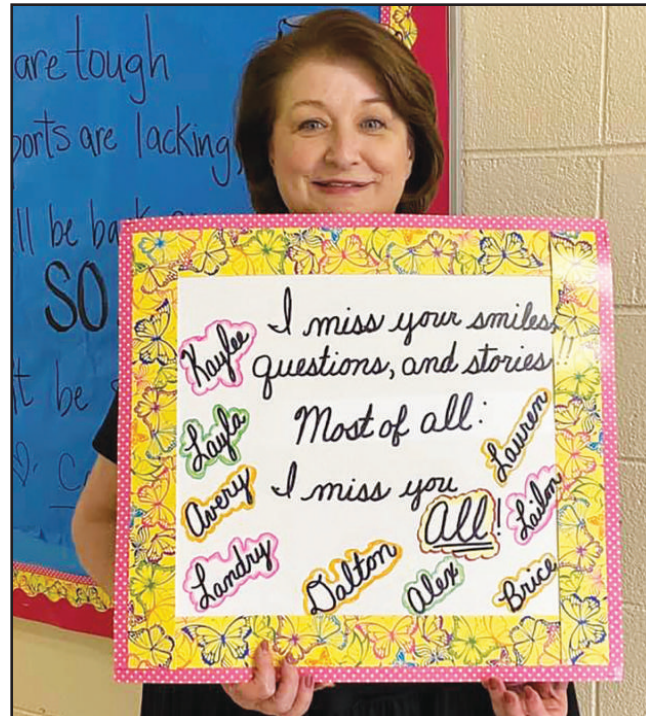 are tough
ports are lacking,
ll be back
SO
t be
I miss your smiles,
questions, and stories!!
Most of all:
I miss you
All!
Kaylee
Layla
Avery
Landry
Dalton
Alex
Brice
Lauren